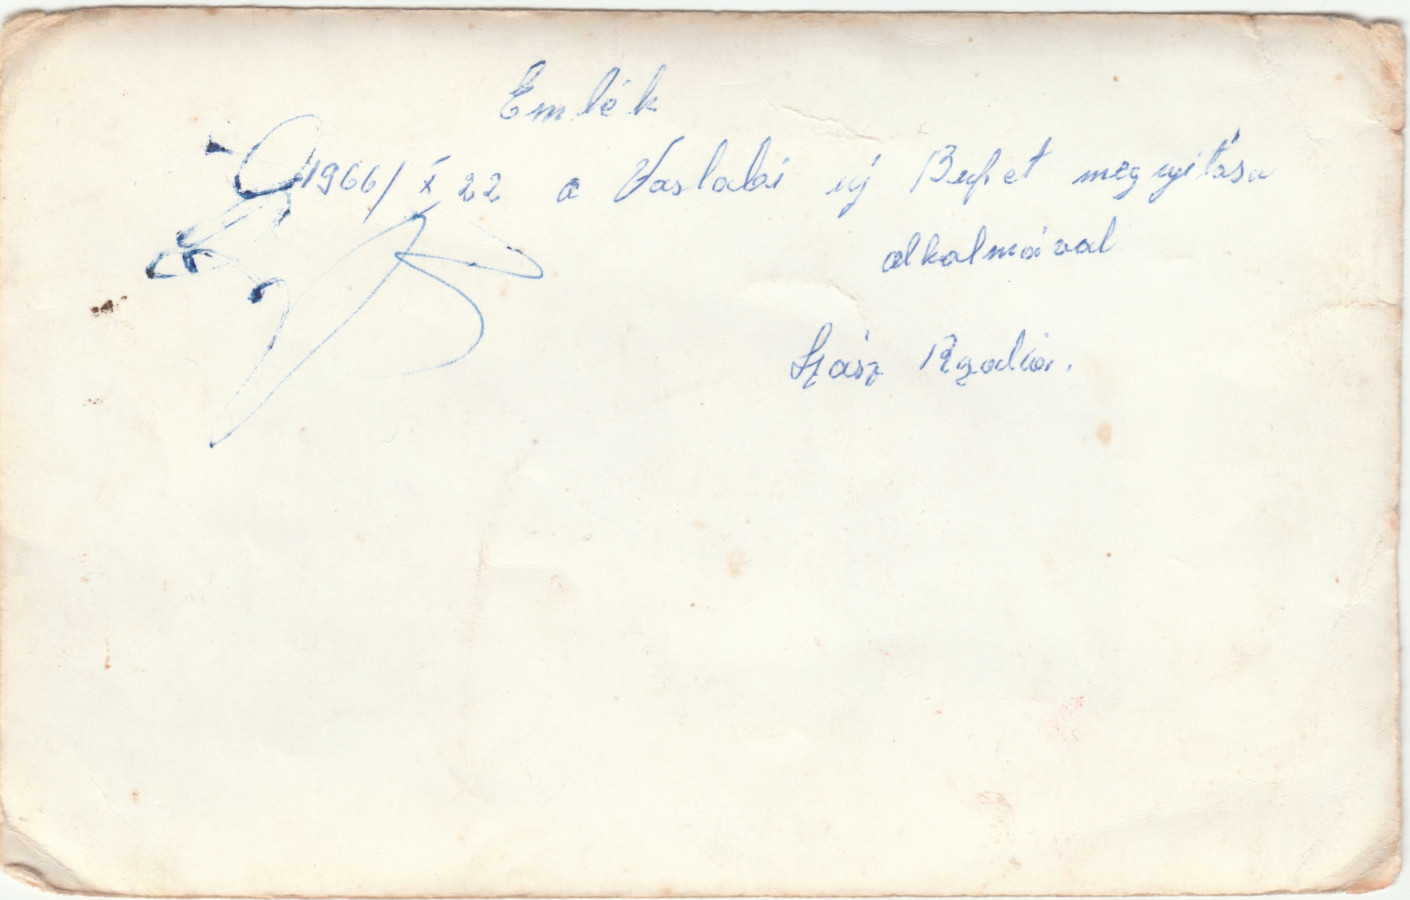 Emlék
1966/X 22 a Vaslabi új Bufet megnyitása
alkalmával
Szász Rozália.